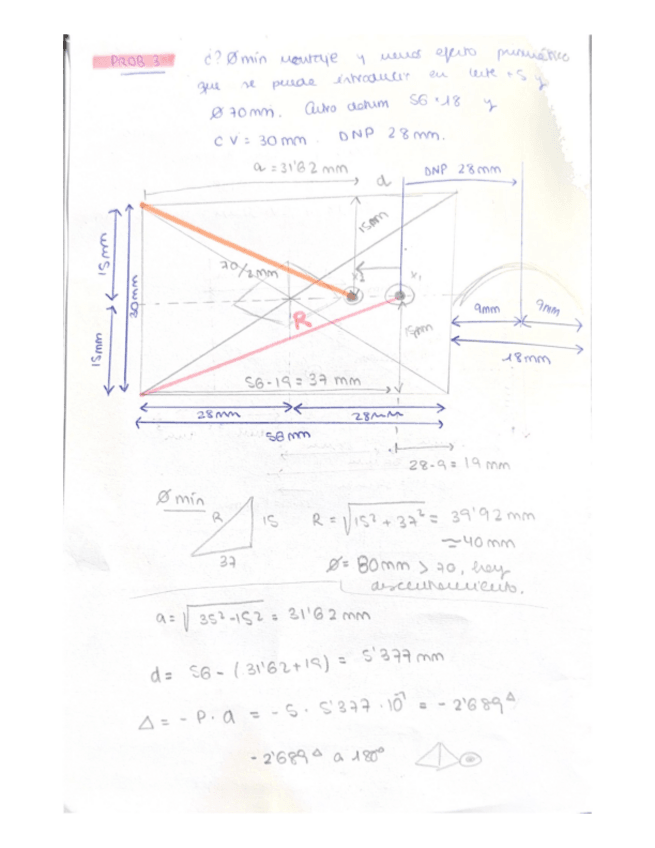 PROB 3
¿? Ø min montaje y menor efecto prismático
que se puede introducir en lente +5 y
Ø 70mm. Aro datum 56·18 y
CV = 30mm. DNP 28mm.
a = 31'62 mm
d
DNP 28mm
15mm
15mm
30mm
70/2mm
x2
x1
R
15mm
15mm
9mm
9mm
18mm
56-19 = 37 mm
28mm
28mm
56mm
28-9 = 19 mm
Ø min
R
15
37
R = √15² + 37² = 39'92 mm
≈ 40mm
Ø = 80mm > 70, hay
descentramiento.
a = √35²-15² = 31'62 mm
d = 56 - (31'62+19) = 5'377 mm
Δ = - P · a = - 5 · 5'377 · 10⁻¹ = - 2'689 Δ
- 2'689 Δ a 180°